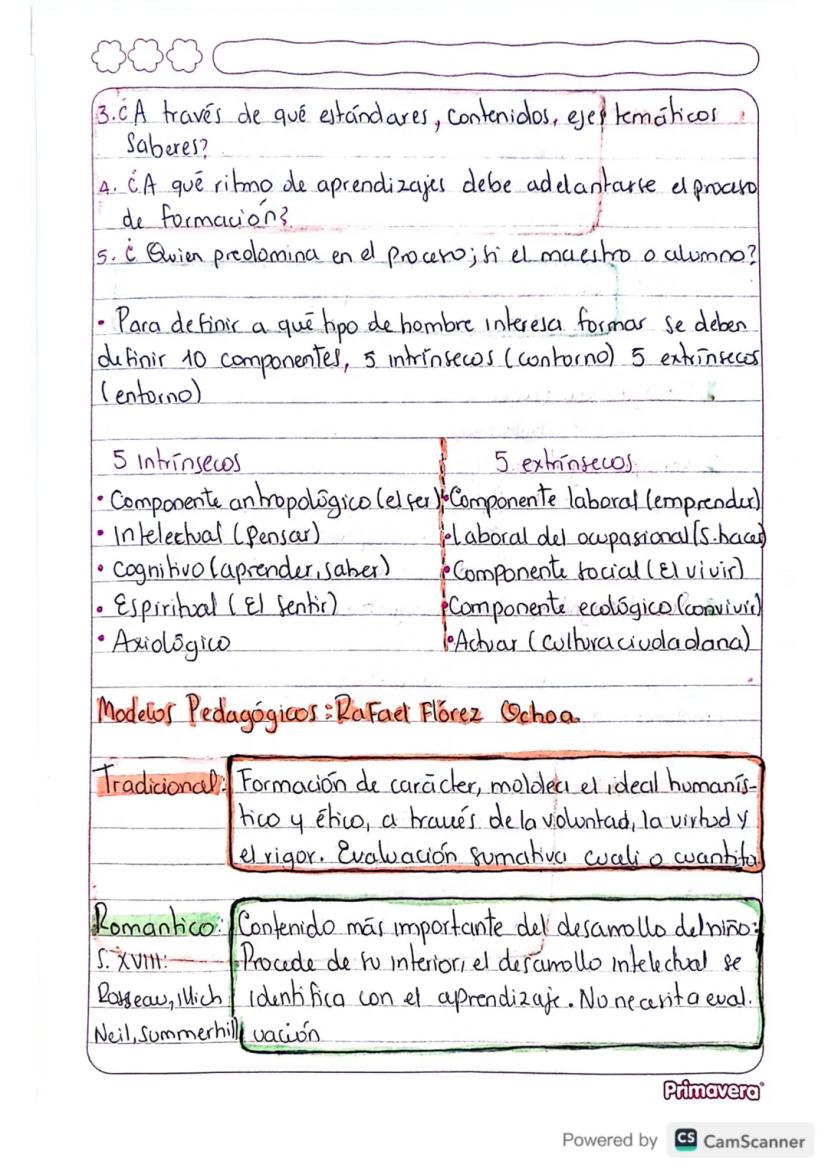 3.¿A través de qué estándares, contenidos, ejes temáticos
Saberes?
4. ¿A qué ritmo de aprendizajes debe adelantarse el proceso
de formación?
5. ¿ Quien predomina en el proceso; si el maestro o alumno?
• Para definir a qué tipo de hombre interesa formar se deben
definir 10 componentes, 5 intrínsecos (contorno) 5 extrínsecos
(entorno)
5 Intrínsecos
5 extrínsecos
• Componente antropológico (el ser)
• Componente laboral (emprender)
• Intelectual (Pensar)
• Laboral del ocupasional (S. hacer)
• Cognitivo (aprender, saber)
• Componente social (El vivir)
• Espiritual ( El Sentir)
• Componente ecológico (convivir)
• Axiológico
• Actuar ( Cultura ciudadana)
Modelos Pedagógicos: Rafael Flórez Ochoa
Tradicional: Formación de carácter, moldea el ideal humanís-
tico y ético, a través de la voluntad, la virtud y
el rigor. Evaluación sumativa cuali o cuantita
Romantico: Contenido más importante del desarrollo del niño:
S. XVIII: Procede de su interior, el desarrollo intelectual se
Rosseau, illich identifica con el aprendizaje. No necesita eval.
Neil, Summerhill uación
Primavera
Powered by CS CamScanner